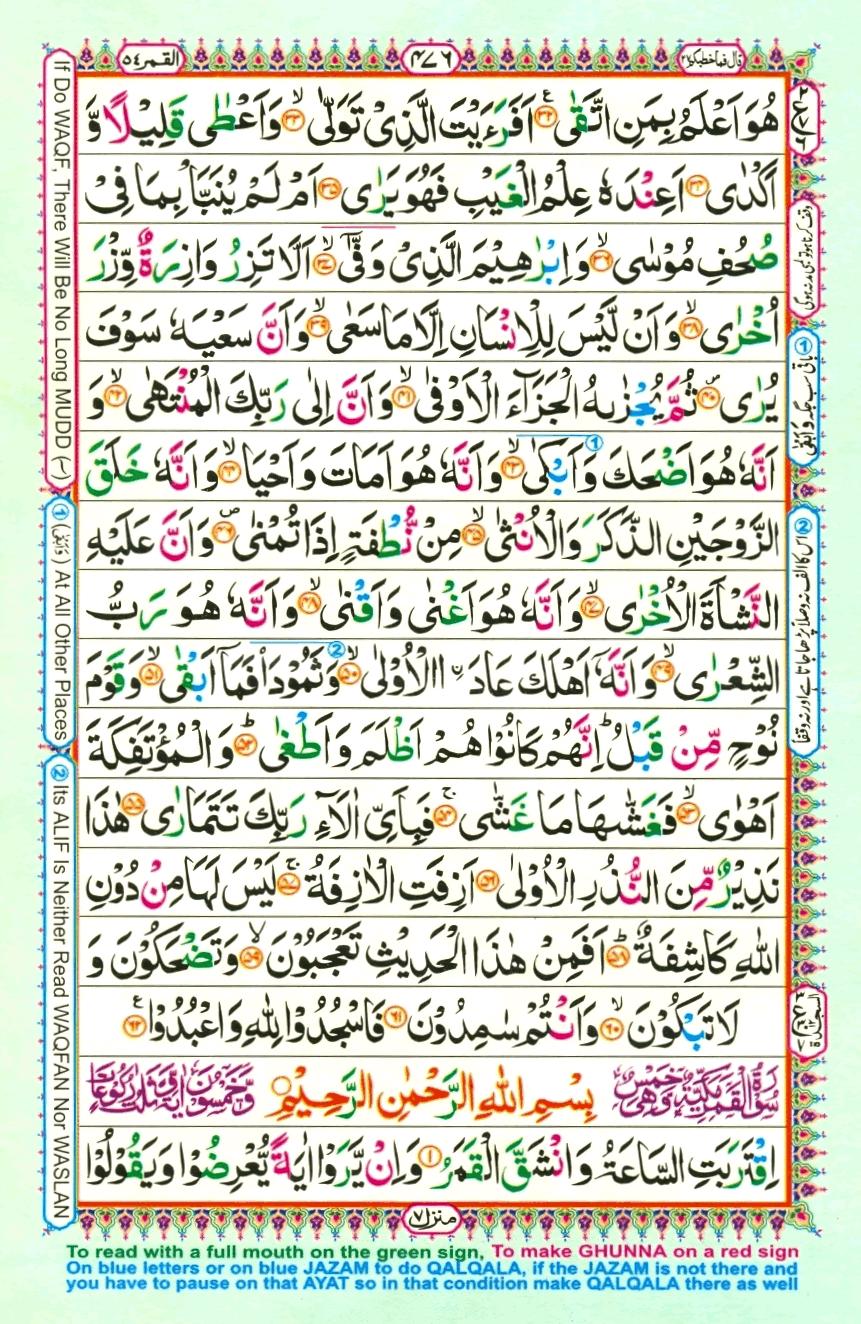 القمر ٥٤
٤٧٦
قال فما خطبكم ٢٧
هُوَ اَعْلَمُ بِمَنِ اتَّقٰى ؑ﴿۳۲﴾ اَفَرَءَيْتَ الَّذِىْ تَوَلّٰى ۙ﴿۳۳﴾ وَاَعْطٰى قَلِيْلًا وَّ
اَكْدٰى ﴿۳۴﴾ اَعِنْدَهٗ عِلْمُ الْغَيْبِ فَهُوَ يَرٰى ﴿۳۵﴾ اَمْ لَمْ يُنَبَّاْ بِمَا فِىْ
صُحُفِ مُوْسٰى ۙ﴿۳۶﴾ وَاِبْرٰهِيْمَ الَّذِىْ وَفّٰىٓ ۙ﴿۳۷﴾ اَلَّا تَزِرُ وَازِرَةٌ وِّزْرَ
اُخْرٰى ۙ﴿۳۸﴾ وَاَنْ لَّيْسَ لِلْاِنْسَانِ اِلَّا مَا سَعٰى ۙ﴿۳۹﴾ وَاَنَّ سَعْيَهٗ سَوْفَ
يُرٰى ۪﴿۴۰﴾ ثُمَّ يُجْزٰىهُ الْجَزَآءَ الْاَوْفٰى ۙ﴿۴۱﴾ وَاَنَّ اِلٰى رَبِّكَ الْمُنْتَهٰى ۙ﴿۴۲﴾ وَ
اَنَّهٗ هُوَ اَضْحَكَ وَاَبْكٰى ۙ﴿۴۳﴾ وَاَنَّهٗ هُوَ اَمَاتَ وَاَحْيَا ۙ﴿۴۴﴾ وَاَنَّهٗ خَلَقَ
الزَّوْجَيْنِ الذَّكَرَ وَالْاُنْثٰى ۙ﴿۴۵﴾ مِنْ نُّطْفَةٍ اِذَا تُمْنٰى ۪﴿۴۶﴾ وَاَنَّ عَلَيْهِ
النَّشْاَةَ الْاُخْرٰى ۙ﴿۴۷﴾ وَاَنَّهٗ هُوَ اَغْنٰى وَاَقْنٰى ۙ﴿۴۸﴾ وَاَنَّهٗ هُوَ رَبُّ
الشِّعْرٰى ۙ﴿۴۹﴾ وَاَنَّهٗٓ اَهْلَكَ عَادَ ۨ االْاُوْلٰى ۙ﴿۵۰﴾ وَثَمُوْدَا۟ فَمَآ اَبْقٰى ۙ﴿۵۱﴾ وَقَوْمَ
نُوْحٍ مِّنْ قَبْلُ ؕ اِنَّهُمْ كَانُوْا هُمْ اَظْلَمَ وَاَطْغٰى ؕ﴿۵۲﴾ وَالْمُؤْتَفِكَةَ
اَهْوٰى ۙ﴿۵۳﴾ فَغَشّٰىهَا مَا غَشّٰى ۚ﴿۵۴﴾ فَبِاَىِّ اٰلَآءِ رَبِّكَ تَتَمَارٰى ﴿۵۵﴾ هٰذَا
نَذِيْرٌ مِّنَ النُّذُرِ الْاُوْلٰى ﴿۵۶﴾ اَزِفَتِ الْاٰزِفَةُ ۚ﴿۵۷﴾ لَيْسَ لَهَا مِنْ دُوْنِ
اللّٰهِ كَاشِفَةٌ ؕ﴿۵۸﴾ اَفَمِنْ هٰذَا الْحَدِيْثِ تَعْجَبُوْنَ ۙ﴿۵۹﴾ وَتَضْحَكُوْنَ وَ
لَا تَبْكُوْنَ ۙ﴿۶۰﴾ وَاَنْتُمْ سٰمِدُوْنَ ﴿۶۱﴾ فَاسْجُدُوْا لِلّٰهِ وَاعْبُدُوْا ؑ﴿۶۲﴾
سُوْرَةُ الْقَمَرِ مَكِّيَّةٌ وَّهِىَ خَمْسٌ
بِسْمِ اللّٰهِ الرَّحْمٰنِ الرَّحِيْمِ
وَّخَمْسُوْنَ اٰيَةً وَّثَلٰثُ رُكُوْعَاتٍ
اِقْتَرَبَتِ السَّاعَةُ وَانْشَقَّ الْقَمَرُ ﴿۱﴾ وَاِنْ يَّرَوْا اٰيَةً يُّعْرِضُوْا وَيَقُوْلُوْا
منزل ٧
If Do WAQF, There Will Be No Long MUDD (~)
① (وَاَبْقٰى) At All Other Places
② Its ALIF Is Neither Read WAQFAN Nor WASLAN
② اس کا الف نہ وصلاً پڑھا جاتا ہے اور نہ وقفاً
السجدة
To read with a full mouth on the green sign, To make GHUNNA on a red sign
On blue letters or on blue JAZAM to do QALQALA, if the JAZAM is not there and
you have to pause on that AYAT so in that condition make QALQALA there as well